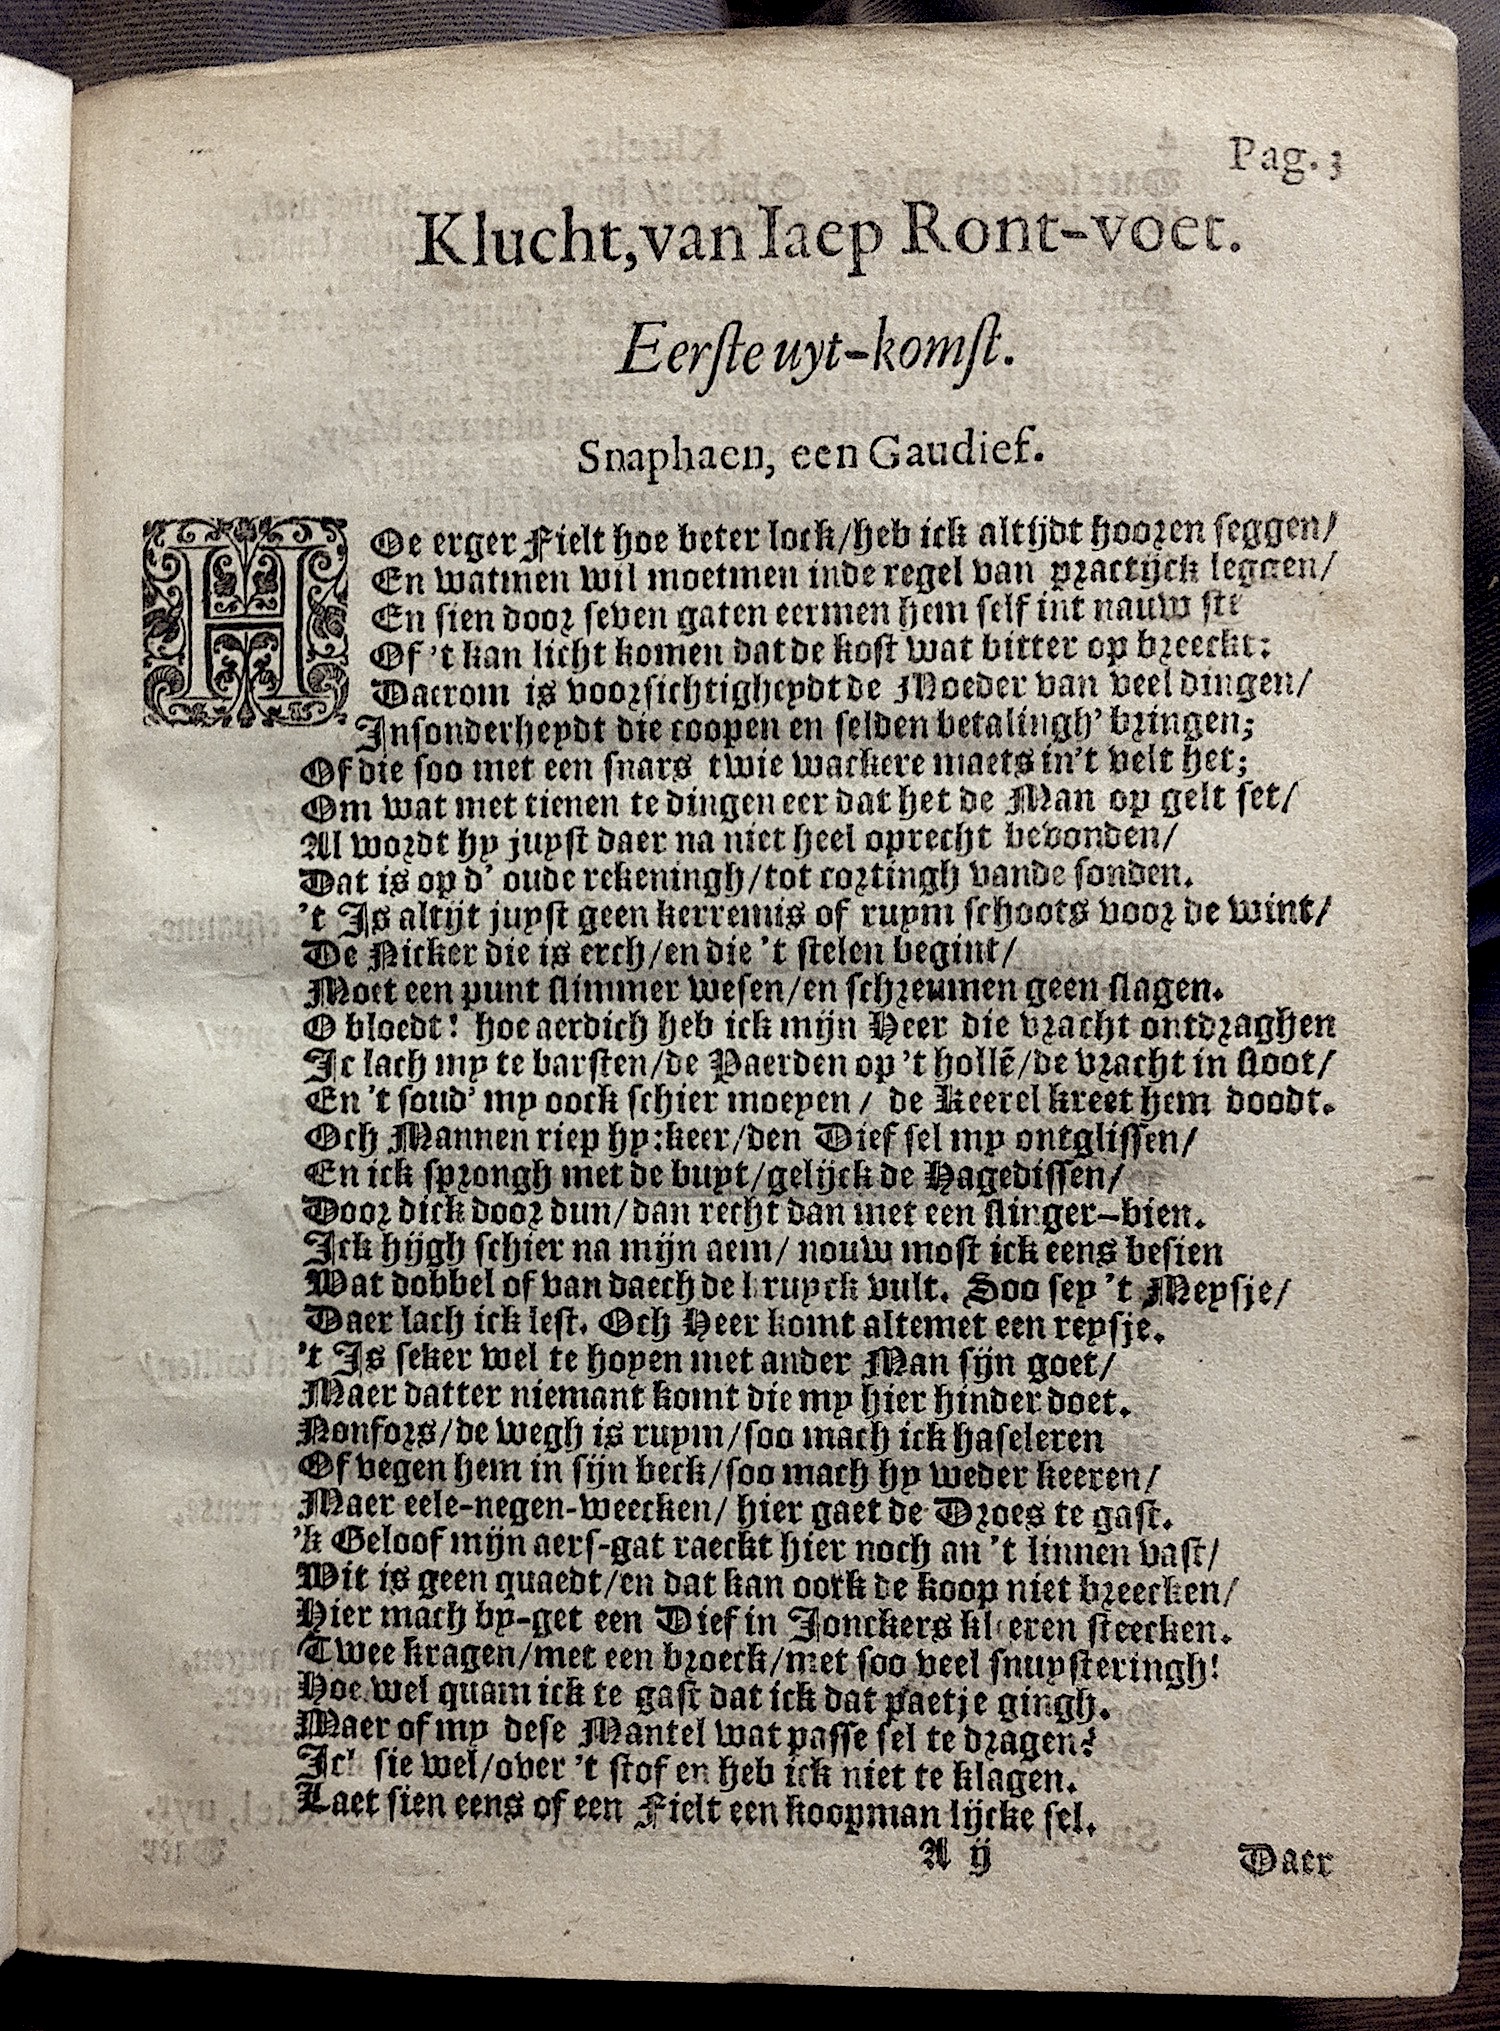 Pag. 3
Klucht, van Iaep Ront-voet.
Eerste uyt-komst.
Snaphaen, een Gaudief.
HOe erger Fielt hoe beter lock/heb ick altijdt hooren seggen/
En watmen wil moetmen inde regel van practijck leggen/
En sien door seven gaten eermen hem self int nauw
Of 't kan licht komen dat de kost wat bitter op breeckt:
Daerom is voorsichtigheydt de Moeder van veel dingen/
Insonderheydt die coopen en selden betalingh' bringen;
Of die soo met een snars twie wackere maets in't velt het;
Om wat met tienen te dingen eer dat het de Man op gelt set/
Al wordt hy juyst daer na niet heel oprecht bevonden/
Dat is op d' oude rekeningh/tot cortingh vande sonden.
't Is altijt juyst geen kerremis of ruym schoots voor de wint/
De Nicker die is erch/en die 't stelen begint/
Moet een punt slimmer wesen/en schreumen geen slagen.
O bloedt! hoe aerdich heb ick mijn Heer die vracht ontdraghen
Ic lach my te barsten/de Paerden op 't hollē/de vracht in sloot/
En 't soud' my oock schier moeyen/ de Keerel kreet hem doodt.
Och Mannen riep hy:keer/den Dief sel my ontglissen/
En ick sprongh met de buyt/gelijck de Hagedissen/
Door dick door dun/dan recht dan met een slinger-bien.
Ick hijgh schier na mijn aem/ nouw most ick eens besien
Wat dobbel of van daech de kruyck vult. Soo sey 't Meysje/
Daer lach ick lest. Och Heer komt altemet een reysje.
't Is seker wel te hopen met ander Man sijn goet/
Maer datter niemant komt die my hier hinder doet.
Nonfors/de wegh is ruym/soo mach ick haseleren
Of vegen hem in sijn beck/soo mach hy weder keeren/
Maer eele-negen-weecken/ hier gaet de Droes te gast.
'k Geloof mijn aers-gat raeckt hier noch an 't linnen vast/
Wit is geen quaedt/en dat kan oock de koop niet breecken/
Hier mach by-get een Dief in Jonckers kleeren steecken.
Twee kragen/met een broeck/met soo veel snuysteringh!
Hoe wel quam ick te gast dat ick dat paetje gingh.
Maer of my dese Mantel wat passe sel te dragen?
Ick sie wel/over 't stof en heb ick niet te klagen.
Laet sien eens of een Fielt een koopman lijcke sel.
A ij Daer